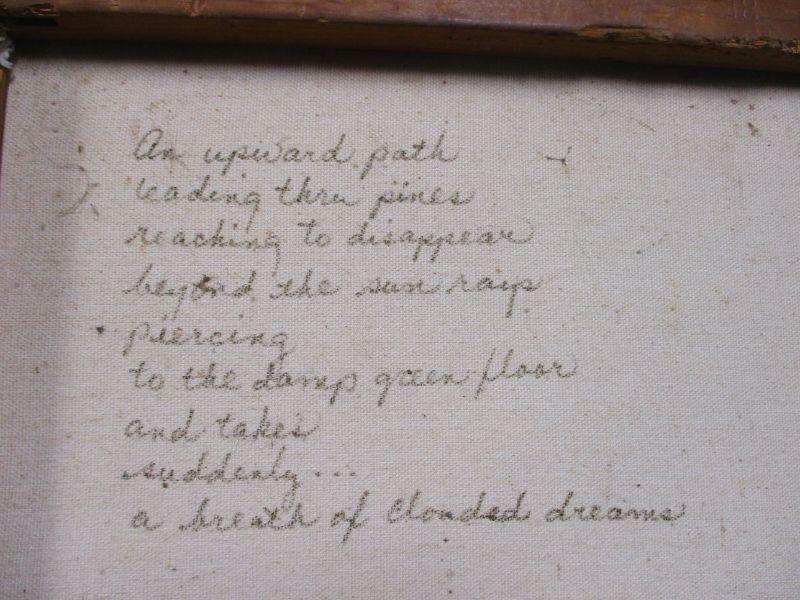 An upward path
leading thru pines
reaching to disappear
beyond the sun rays
piercing
to the damp green floor
and takes
suddenly...
a breath of clouded dreams